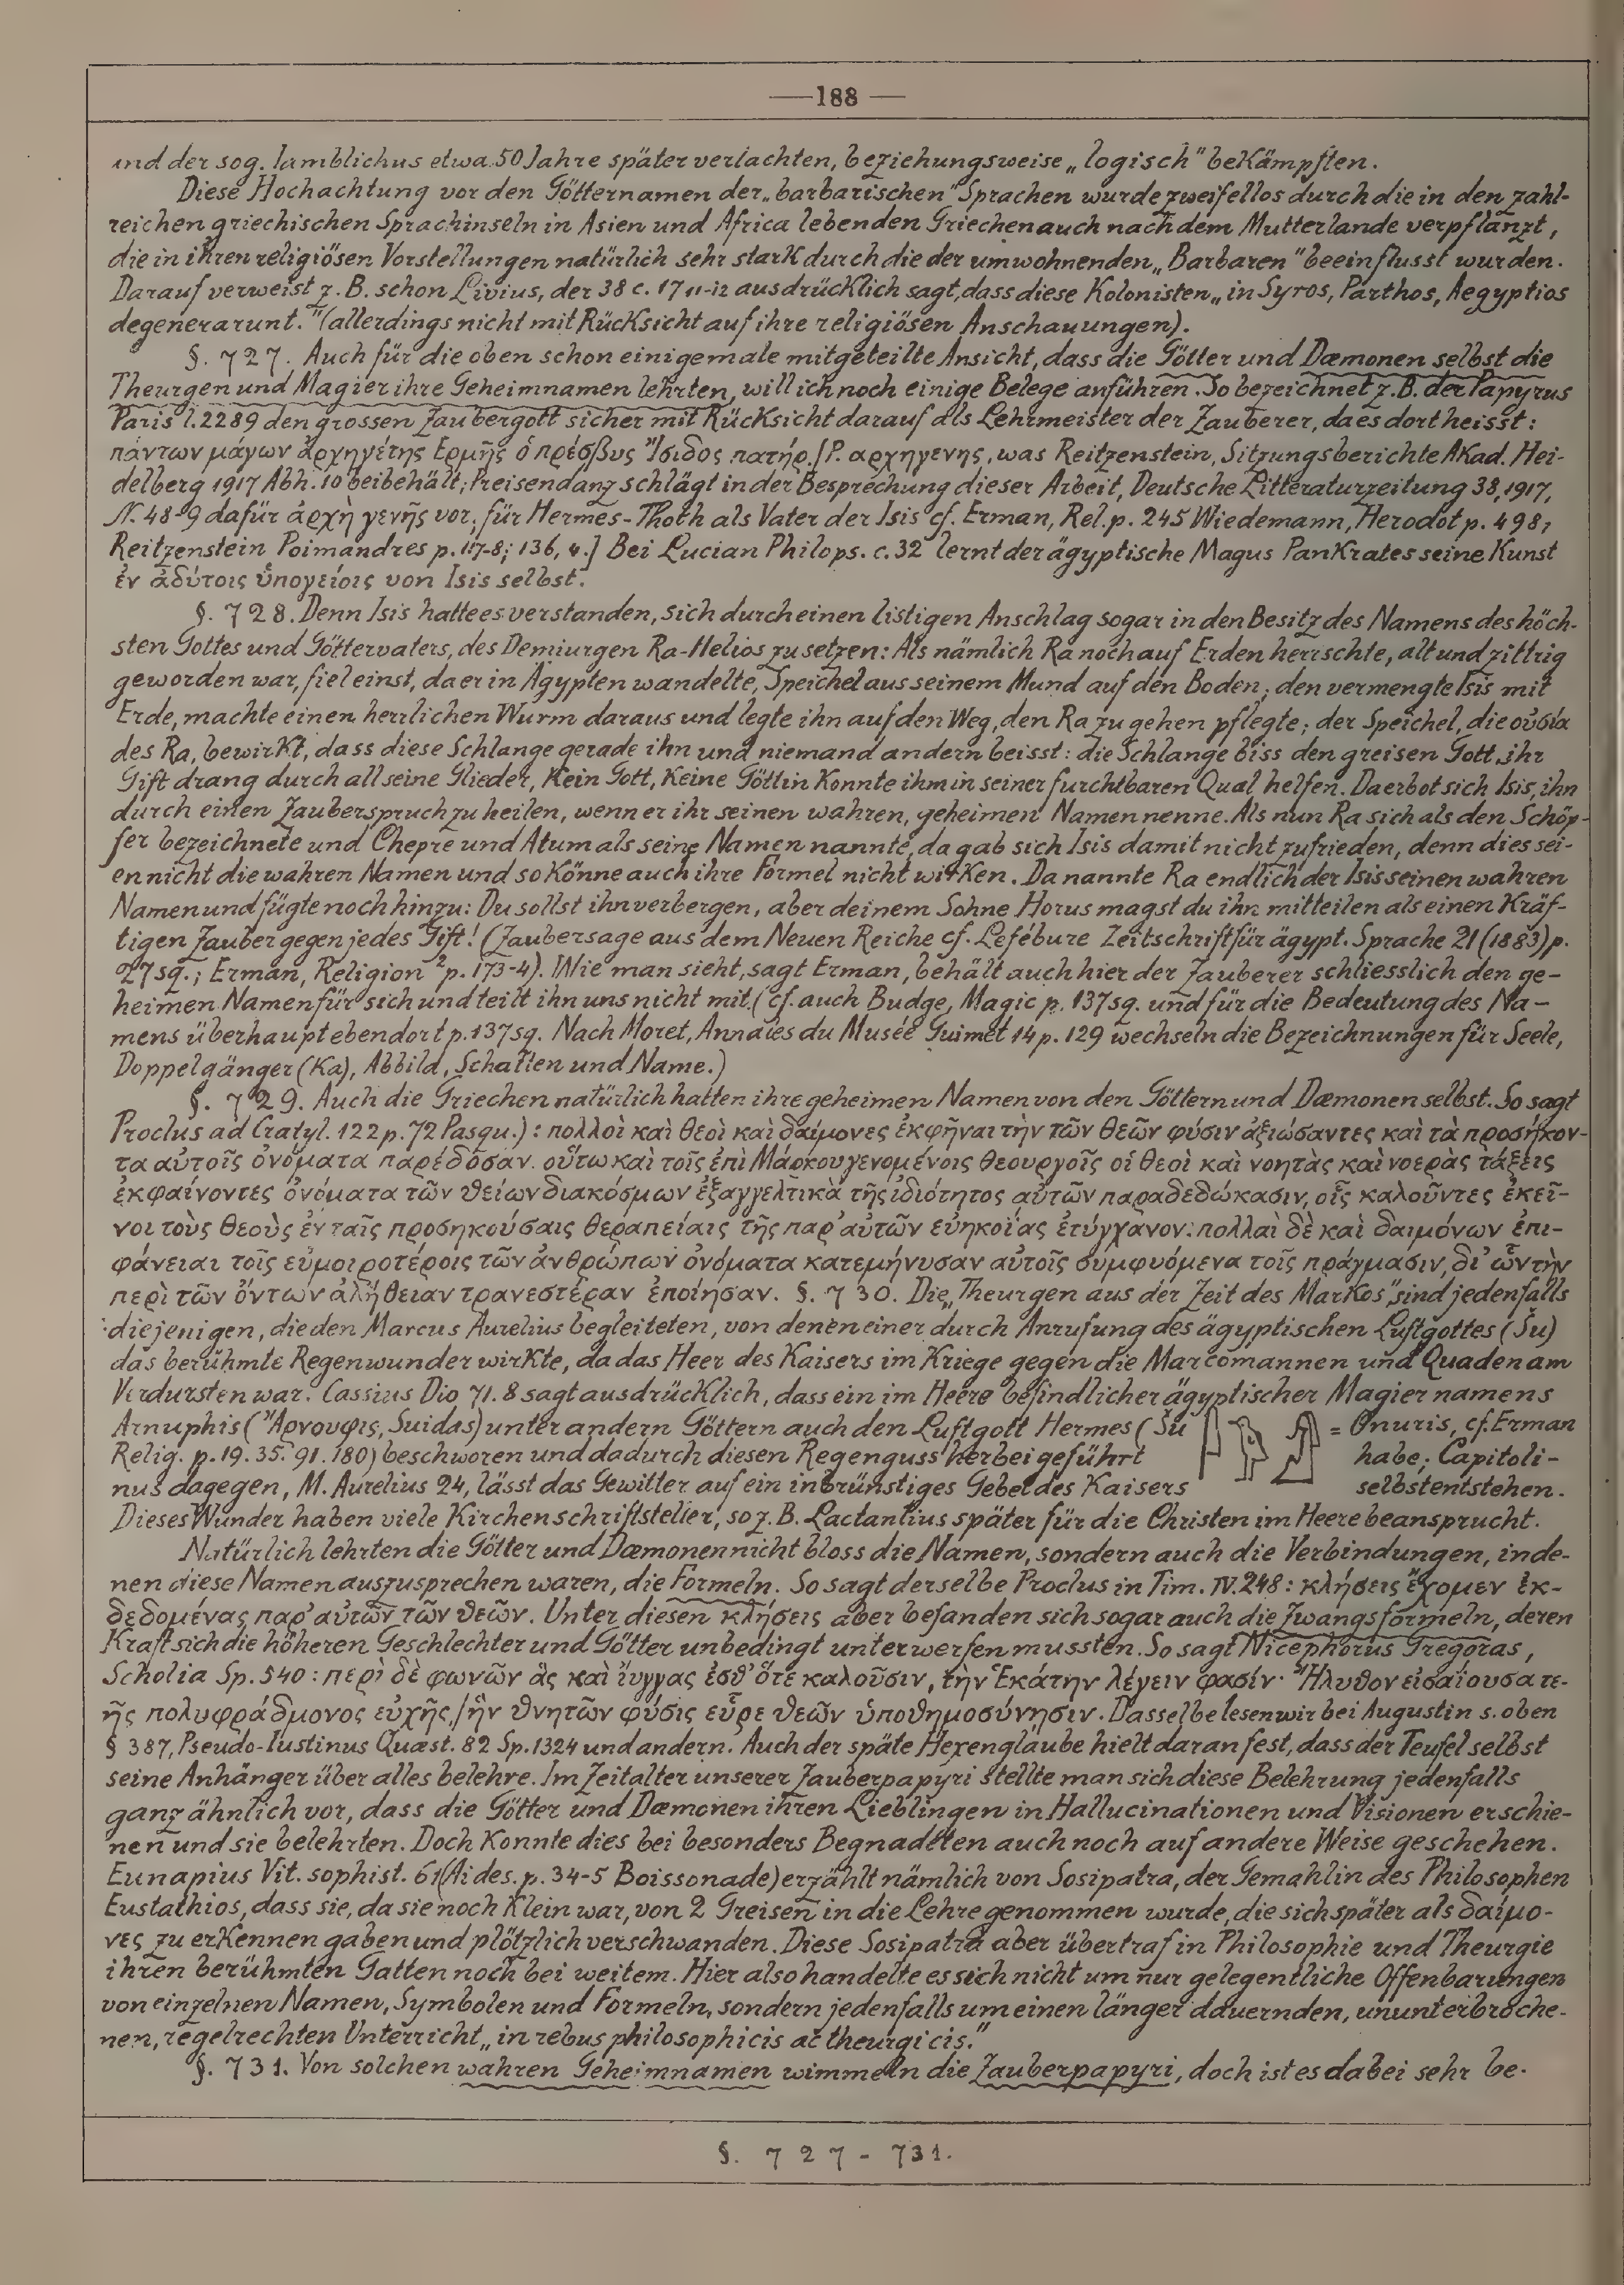 —188—
und der sog. Iamblichus etwa 50 Jahre später verlachten, beziehungsweise „logisch“ bekämpften.
Diese Hochachtung vor den Götternamen der „barbarischen“ Sprachen wurde zweifellos durch die in den zahl-
reichen griechischen Sprachinseln in Asien und Africa lebenden Griechen auch nach dem Mutterlande verpflanzt,
die in ihren religiösen Vorstellungen natürlich sehr stark durch die der umwohnenden „Barbaren“ beeinflusst wurden.
Darauf verweist z. B. schon Livius, der 38 c. 17 11-12 ausdrücklich sagt, dass diese Kolonisten „in Syros, Parthos, Aegyptios
degenerarunt.“ (allerdings nicht mit Rücksicht auf ihre religiösen Anschauungen).
§. 727. Auch für die oben schon einigemale mitgeteilte Ansicht, dass die Götter und Dæmonen selbst die
Theurgen und Magier ihre Geheimnamen lehrten, will ich noch einige Belege anführen. So bezeichnet z. B. der Papyrus
Paris l. 2289 den grossen Zaubergott sicher mit Rücksicht darauf als Lehrmeister der Zauberer, da es dort heisst:
πάντων μάγων ἀρχηγέτης Ἑρμῆς ὁ πρέσβυς Ἴσιδος πατήρ. [P. αρχηγενης, was Reitzenstein, Sitzungsberichte Akad. Hei-
delberg 1917 Abh. 10 beibehält; Preisendanz schlägt in der Besprechung dieser Arbeit, Deutsche Litteraturzeitung 38, 1917,
N. 48-9 dafür ἀρχὴ γενῆς vor; für Hermes-Thoth als Vater der Isis cf. Erman, Rel. p. 245 Wiedemann, Herodot p. 498,
Reitzenstein Poimandres p. 117-8; 136, 4.] Bei Lucian Philops. c. 32 lernt der ägyptische Magus Pankrates seine Kunst
ἐν ἀδύτοις ὑπογείοις von Isis selbst.
§. 728. Denn Isis hatte es verstanden, sich durch einen listigen Anschlag sogar in den Besitz des Namens des höch-
sten Gottes und Göttervaters, des Demiurgen Ra-Helios zu setzen: Als nämlich Ra noch auf Erden herrschte, alt und zittrig
geworden war, fiel einst, da er in Ägypten wandelte, Speichel aus seinem Mund auf den Boden; den vermengte Isis mit
Erde, machte einen herrlichen Wurm daraus und legte ihn auf den Weg, den Ra zu gehen pflegte; der Speichel, die οὐσία
des Ra, bewirkt, dass diese Schlange gerade ihn und niemand andern beisst: die Schlange biss den greisen Gott, ihr
Gift drang durch all seine Glieder, kein Gott, keine Göttin konnte ihm in seiner furchtbaren Qual helfen. Da erbot sich Isis, ihn
durch einen Zauberspruch zu heilen, wenn er ihr seinen wahren, geheimen Namen nenne. Als nun Ra sich als den Schöp-
fer bezeichnete und Chepre und Atum als seine Namen nannte, da gab sich Isis damit nicht zufrieden, denn dies sei-
en nicht die wahren Namen und so könne auch ihre Formel nicht wirken. Da nannte Ra endlich der Isis seinen wahren
Namen und fügte noch hinzu: Du sollst ihn verbergen, aber deinem Sohne Horus magst du ihn mitteilen als einen kräf-
tigen Zauber gegen jedes Gift! (Zaubersage aus dem Neuen Reiche cf. Lefébure Zeitschrift für ägypt. Sprache 21 (1883) p.
27 sq.; Erman, Religion ² p. 173-4). Wie man sieht, sagt Erman, behält auch hier der Zauberer schliesslich den ge-
heimen Namen für sich und teilt ihn uns nicht mit. (cf. auch Budge, Magic p. 137 sq. und für die Bedeutung des Na-
mens überhaupt ebendort p. 137 sq. Nach Moret, Annales du Musée Guimet 14 p. 129 wechseln die Bezeichnungen für Seele,
Doppelgänger (Ka), Abbild, Schatten und Name.)
§. 729. Auch die Griechen natürlich hatten ihre geheimen Namen von den Göttern und Dæmonen selbst. So sagt
Proclus ad Cratyl. 122 p. 72 Pasqu.): πολλοὶ καὶ θεοὶ καὶ δαίμονες ἐκφῆναι τὴν τῶν θεῶν φύσιν ἀξιώσαντες καὶ τὰ προσήκον-
τα αὐτοῖς ὀνόματα παρέδοσαν. οὕτω καὶ τοῖς ἐπὶ Μάρκου γενομένοις θεουργοῖς οἱ θεοὶ καὶ νοητὰς καὶ νοερὰς τάξεις
ἐκφαίνοντες ὀνόματα τῶν θείων διακόσμων ἐξαγγελτικὰ τῆς ἰδιότητος αὐτῶν παραδεδώκασιν, οἷς καλοῦντες ἐκεῖ-
νοι τοὺς θεοὺς ἐν ταῖς προσηκούσαις θεραπείαις τῆς παρ’ αὐτῶν εὐηκοίας ἐτύγχανον: πολλαὶ δὲ καὶ δαιμόνων ἐπι-
φάνειαι τοῖς εὐμοιροτέροις τῶν ἀνθρώπων ὀνόματα κατεμήνυσαν αὐτοῖς συμφυόμενα τοῖς πράγμασιν, δι’ ὧν τὴν
περὶ τῶν ὄντων ἀλήθειαν τρανεστέραν ἐποίησαν. §. 730. Die „Theurgen aus der Zeit des Markos“ sind jedenfalls
diejenigen, die den Marcus Aurelius begleiteten, von denen einer durch Anrufung des ägyptischen Luftgottes (Šu)
das berühmte Regenwunder wirkte, da das Heer des Kaisers im Kriege gegen die Marcomannen und Quaden am
Verdursten war. Cassius Dio 71. 8 sagt ausdrücklich, dass ein im Heere befindlicher ägyptischer Magier namens
Arnuphis (Ἄρνουφις, Suidas) unter andern Göttern auch den Luftgott Hermes (Šu = Onuris, cf. Erman
Relig. p. 19. 35. 91. 180) beschworen und dadurch diesen Regenguss herbeigeführt habe; Capitoli-
nus dagegen, M. Aurelius 24, lässt das Gewitter auf ein inbrünstiges Gebet des Kaisers selbst entstehen.
Dieses Wunder haben viele Kirchenschriftsteller, so z. B. Lactantius später für die Christen im Heere beansprucht.
Natürlich lehrten die Götter und Dæmonen nicht bloss die Namen, sondern auch die Verbindungen, in de-
nen diese Namen auszusprechen waren, die Formeln. So sagt derselbe Proclus in Tim. IV. 248: κλήσεις ἔχομεν ἐκ-
δεδομένας παρ’ αὐτῶν τῶν θεῶν. Unter diesen κλήσεις aber befanden sich sogar auch die Zwangsformeln, deren
Kraft sich die höheren Geschlechter und Götter unbedingt unterwerfen mussten. So sagt Nicephorus Gregoras,
Scholia Sp. 540: περὶ δὲ φωνῶν ἃς καὶ ἴυγγας ἐσθ’ ὅτε καλοῦσιν, τὴν Ἑκάτην λέγειν φασίν· Ἤλυθον εἰσαΐουσα τε-
ῆς πολυφράδμονος εὐχῆς,/ἣν θνητῶν φύσις εὗρε θεῶν ὑποθημοσύνησιν. Dasselbe lesen wir bei Augustin s. oben
§ 387, Pseudo-Iustinus Quæst. 82 Sp. 1324 und andern. Auch der späte Hexenglaube hielt daran fest, dass der Teufel selbst
seine Anhänger über alles belehre. Im Zeitalter unserer Zauberpapyri stellte man sich diese Belehrung jedenfalls
ganz ähnlich vor, dass die Götter und Dæmonen ihren Lieblingen in Hallucinationen und Visionen erschie-
nen und sie belehrten. Doch konnte dies bei besonders Begnadeten auch noch auf andere Weise geschehen.
Eunapius Vit. sophist. 61 (Aides. p. 34-5 Boissonade) erzählt nämlich von Sosipatra, der Gemahlin des Philosophen
Eustathios, dass sie, da sie noch klein war, von 2 Greisen in die Lehre genommen wurde, die sich später als δαίμο-
νες zu erkennen gaben und plötzlich verschwanden. Diese Sosipatra aber übertraf in Philosophie und Theurgie
ihren berühmten Gatten noch bei weitem. Hier also handelte es sich nicht um nur gelegentliche Offenbarungen
von einzelnen Namen, Symbolen und Formeln, sondern jedenfalls um einen länger dauernden, ununterbroche-
nen, regelrechten Unterricht „in rebus philosophicis ac theurgicis.“
§. 731. Von solchen wahren Geheimnamen wimmeln die Zauberpapyri, doch ist es dabei sehr be-
§. 727 - 731.